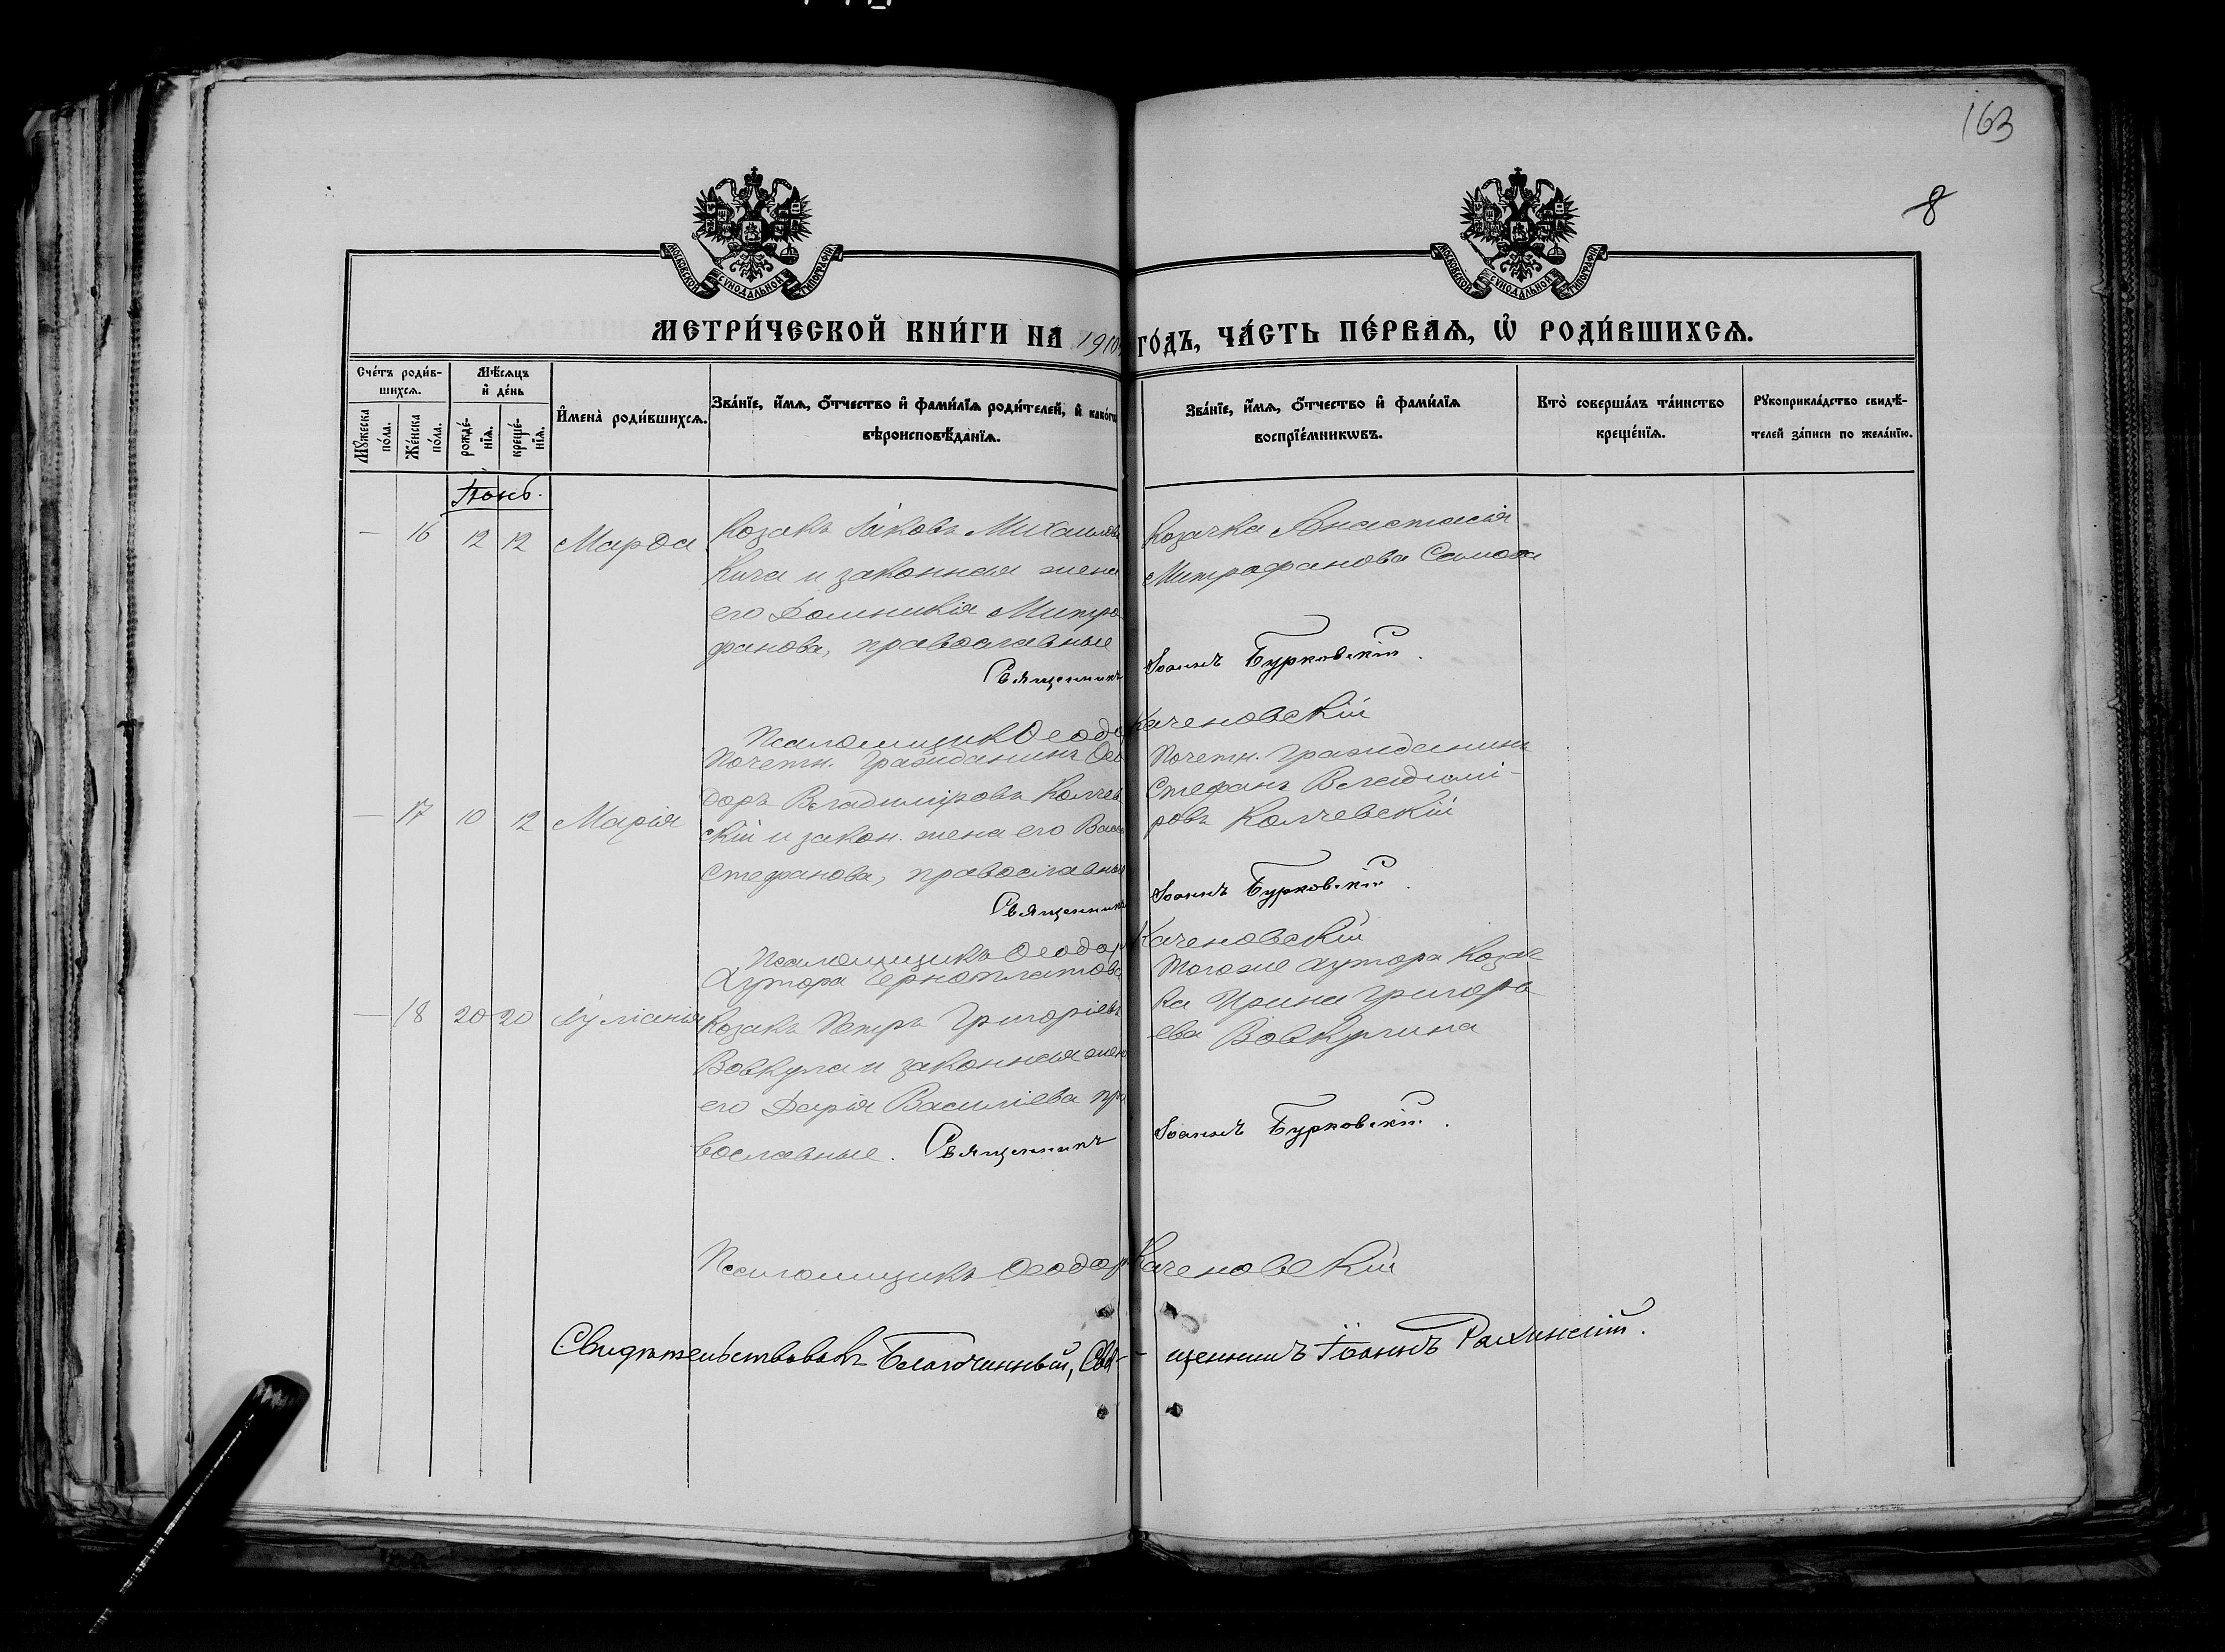 163
8
МОСКОВСКОЙ СѴНОДАЛЬНОЙ ТИПОГРАФІИ
МОСКОВСКОЙ СѴНОДАЛЬНОЙ ТИПОГРАФІИ
МЕТРИ́ЧЕСКОЙ КНИ́ГИ НА 1910 ГО́ДЪ, ЧА́СТЬ ПЕ́РВАѦ, Ѽ РОДИ́ВШИХСѦ.
Сче́тъ роди́в-
шихсѧ.
Мѣ́сѧцъ
и҆ де́нь
Мꙋ́жеска
по́ла.
Же́нска
по́ла.
рожде́-
нїѧ.
креще́-
нїѧ.
И҆мена̀ роди́вшихсѧ.
Зва́нїе, и҆́мѧ, ѻ҆́тчество и҆ фами́лїѧ роди́телей, и҆ како́гѡ
вѣроисповѣ́данїѧ.
Зва́нїе, и҆́мѧ, ѻ҆́тчество и҆ фами́лїѧ
воспрїе́мникѡвъ.
Кто̀ соверша́лъ та́инство
креще́нїѧ.
Рꙋкоприкла́дство свидѣ́-
телей за́писи по жела́нїю.
Іюнь.
— 16 12 12 Марѳа
Козакъ Іаковъ Михаиловъ
Кича и законная жена
его Домникія Митро
фанова, православные
Козачка Анастасія
Митрафанова
Священникъ Іоаннъ Бурковскій.
Псаломщик Ѳеодор Каченовскій
— 17 10 12 Марія
Почетн. Гражданинъ Ѳео
доръ Владиміровъ Колчев
скій и закон. жена его Васса
Стефанова, православные
Почетн. Гражданинъ
Стефанъ Владимі-
ровъ Колчевскій
Священникъ Іоаннъ Бурковскій.
Псаломщикъ Ѳеодор Каченовскій
— 18 20 20 Іуліанія
Хутора
Козакъ Петръ Григоріевъ
Вовкула и законная жена
его Дарія Василіева пра
вославные.
Тогоже хутора Козач
ка Ирина Григорь
ева Вовкулина
Священникъ Іоаннъ Бурковскій.
Псаломщикъ Ѳеодор Каченовскій
Свидѣтельствовалъ Благочинный, Свя-
щенникъ Іоаннъ